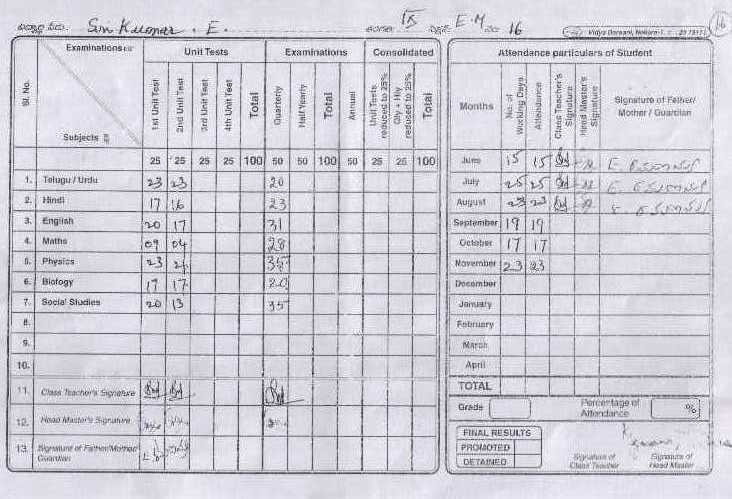 IX E.M 16
16
Examinations Unit Tests Examinations Consolidated
Sl. No. Subjects 1st Unit Test 2nd Unit Test 3rd Unit Test 4th Unit Test Total Quarterly Half Yearly Total Annual Unit Tests reduced to 25% Qly + Hly reduced to 25% Total
25 25 25 25 100 50 50 100 50 25 25 100
1. Telugu / Urdu 23 23 20
2. Hindi 17 16 23
3. English 20 17 31
4. Maths 09 04 28
5. Physics 23 35
6. Biology 17 17 20
7. Social Studies 20 13 35
8.
9.
10.
11. Class Teacher's Signature
12. Head Master's Signature
13. Signature of Father/Mother/ Guardian
Attendance particulars of Student
Months No. of Working Days Attendance Class Teacher's Signature Head Master's Signature Signature of Father/ Mother / Guardian
June 15 15
July 25 25
August 23 23
September 19 19
October 17 17
November 23 23
December
January
February
March
April
TOTAL
Grade Percentage of Attendance %
FINAL RESULTS
PROMOTED
DETAINED
Signature of Class Teacher Signature of Head Master